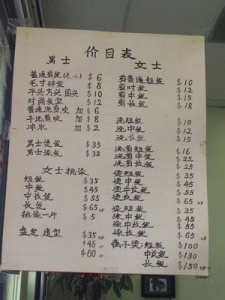 价目表
男士
普通剪发(大、小) $6
毛寸碎发 $8
平头方头圆头 $10
时尚发型 $12
普通洗剪吹 加 $2
干洗剪吹 加 $8
冲水 加 $2
男士烫发 $35
男士染发 $35
女士挑染
短发 $35
中发 $45
中长发 $55
长发 $65 up
挑染一片 $5
盘发造型 $35
$45 up
$60
女士
剪普通短发 $10
剪时发 $12
剪中发 $15
剪长发 $18
洗短发 $10
洗中发 $12
洗长发 $15
洗剪短发 $16
洗剪中发 $22
洗剪长发 $25
烫短发 $35
烫中发 $45
烫中长发 $55
烫长发 $65 up
染短发 $35
染中发 $45
染中长发 $55
染长发 $65 up
离子烫: 短发 $100
中长发 $130
长发 $150 up